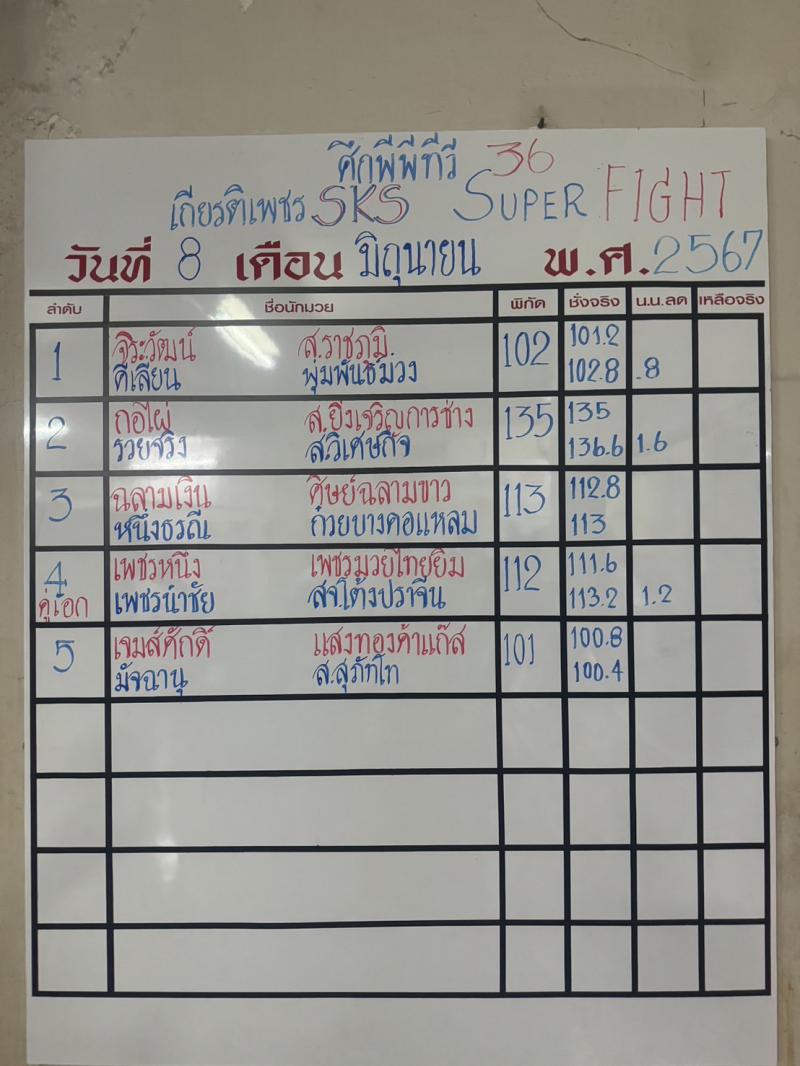 ศึกพีพีทีวี 36
เกียรติเพชร SKS SUPER FIGHT
วันที่ 8 เดือน มิถุนายน พ.ศ. 2567
ลำดับ ชื่อนักมวย พิกัด ชั่งจริง น.น.ลด เหลือจริง
1 จิระวัฒน์ ส.ราชภูมิ. 102 101.2
คีเลียน พุ่มพันธ์ม่วง 102.8 .8
2 กอไผ่ ส.ยิ่งเจริญการช่าง 135 135
รวยจริง ส.วิเศษกิจ 136.6 1.6
3 ฉลามเงิน ศิษย์ฉลามขาว 113 112.8
หนึ่งธรณี ก๋วยบางคอแหลม 113
4 เพชรหนึ่ง เพชรมวยไทยยิม 112 111.6
คู่เอก เพชรนำชัย สจ.โต้งปราจีน 113.2 1.2
5 เจมส์ศักดิ์ แสงทองค้าแก๊ส 101 100.8
มัจฉานุ ส.สุภัทโท 100.4